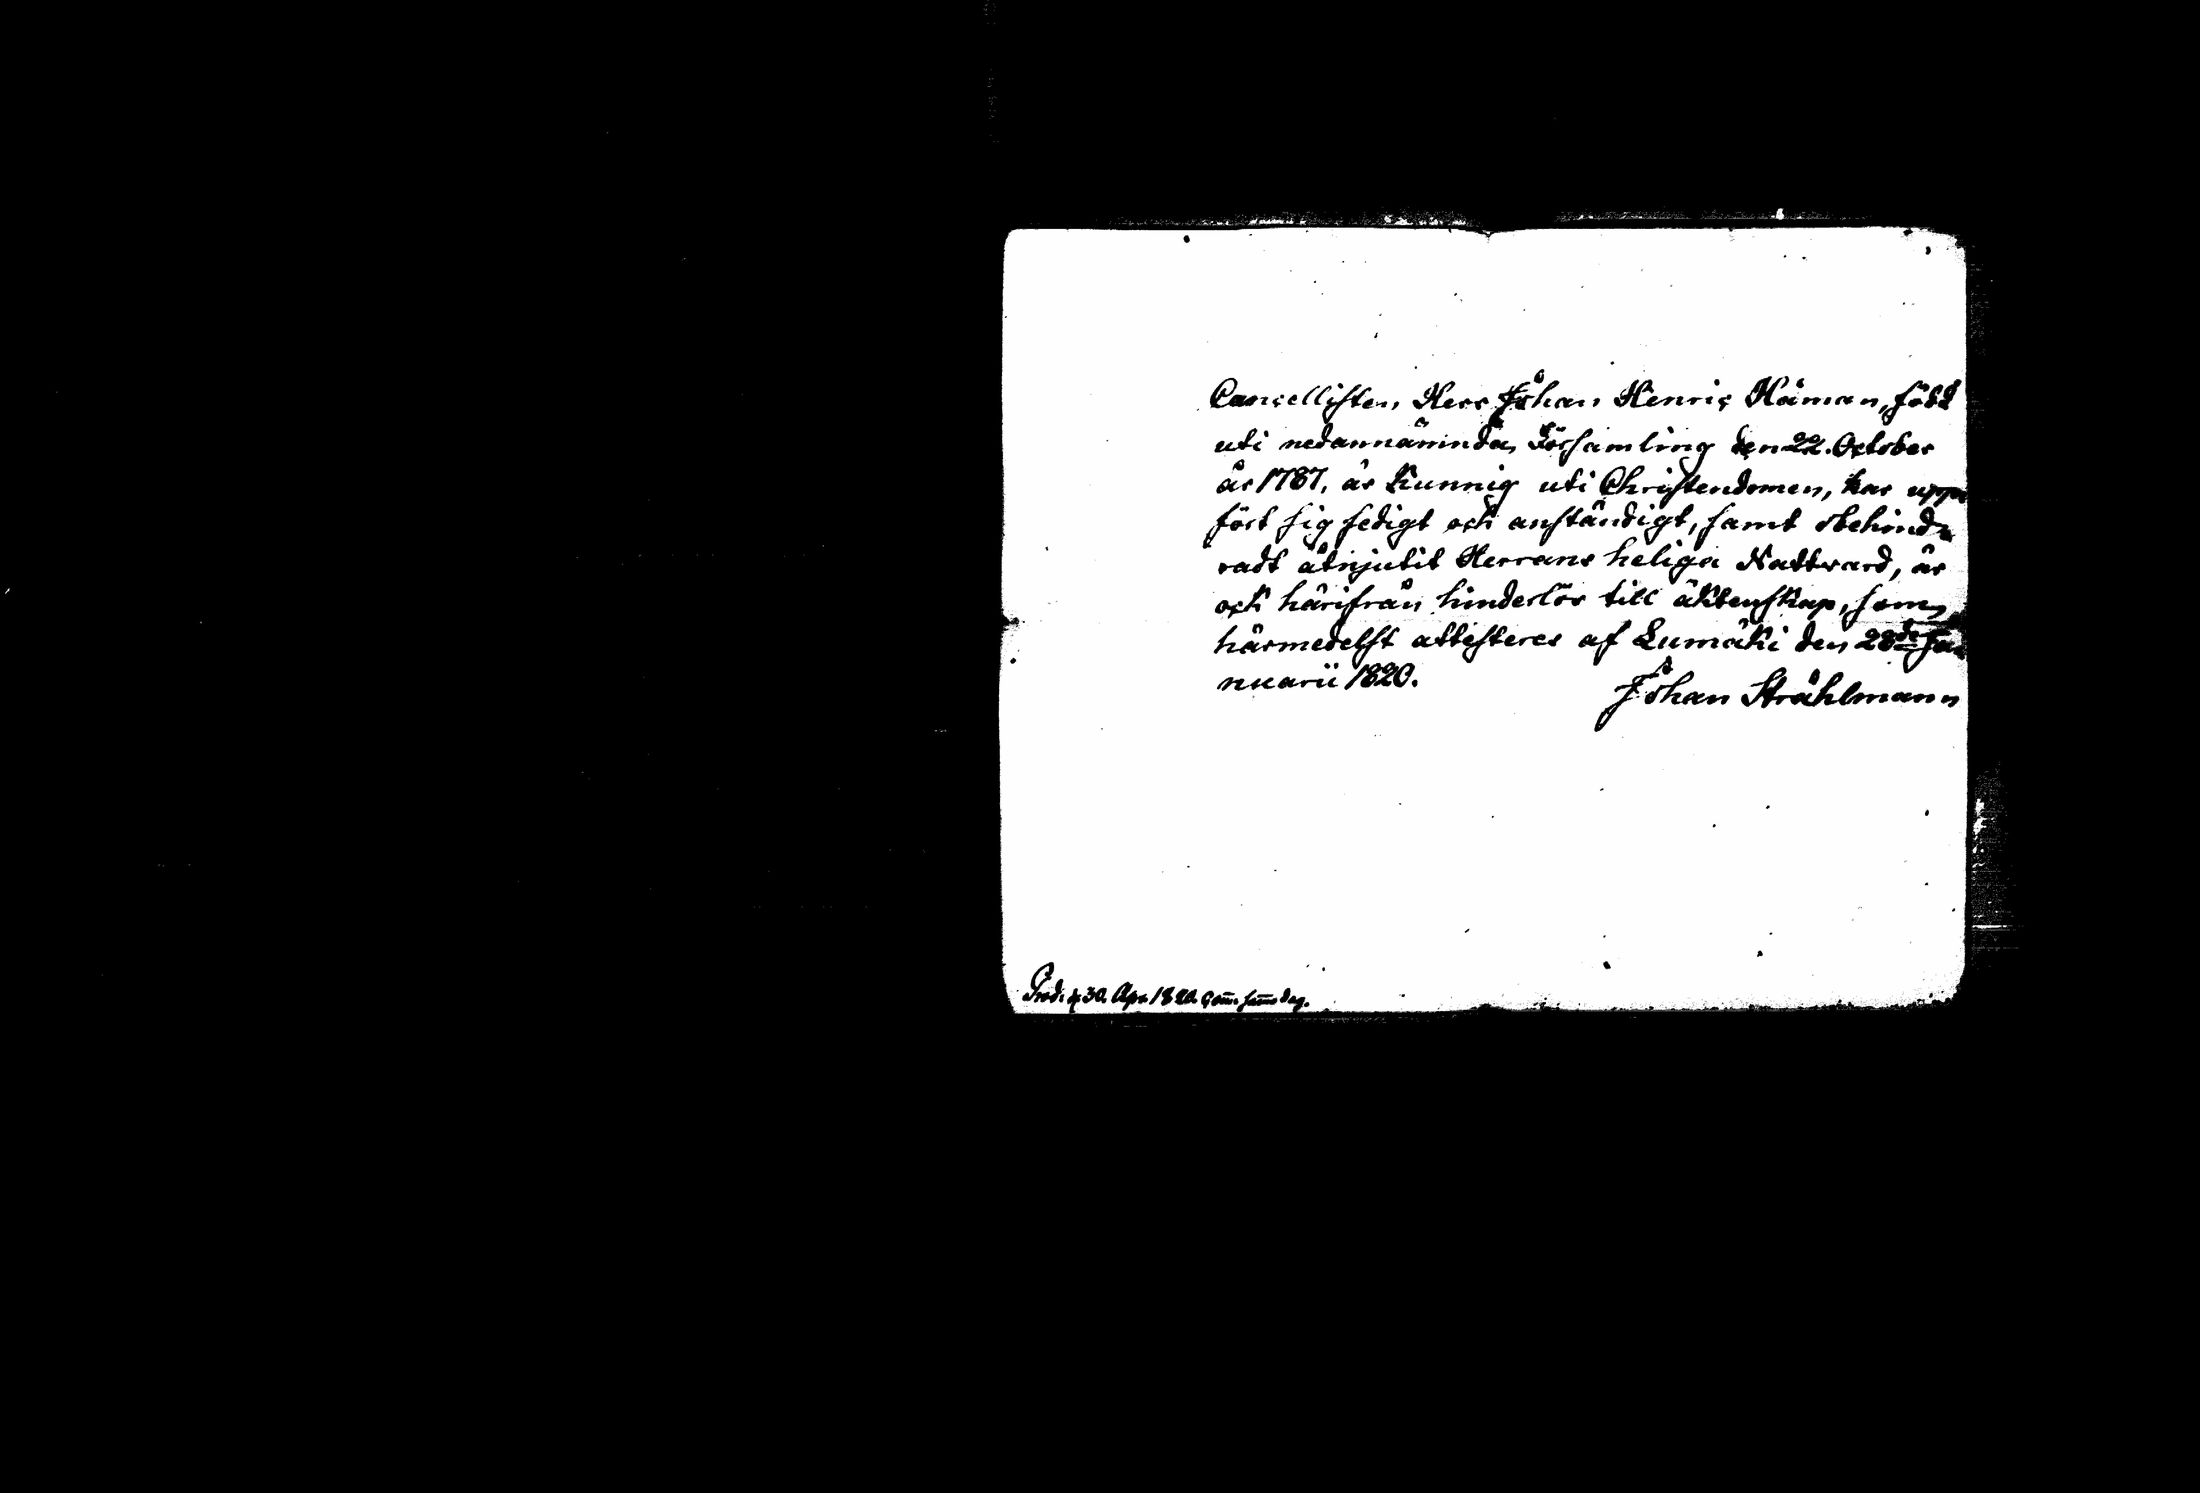 Cancellisten Herr Johan Henric Häman, född
uti nedannämnda Församling den 22. October
år 1787, är Kunnig uti Christendomen, har upp=
fört sig sedigt och anständigt, samt obehind=
radt åtnjutit Herrans heliga Nattvard, är
och härifrån hinderlös till äktenskap, som
härmedelst attesteras af Lumäki den 28de Ja=
nuarii 1820.
Johan Stråhlmann
Prod. d. 30. Apr. 1820.